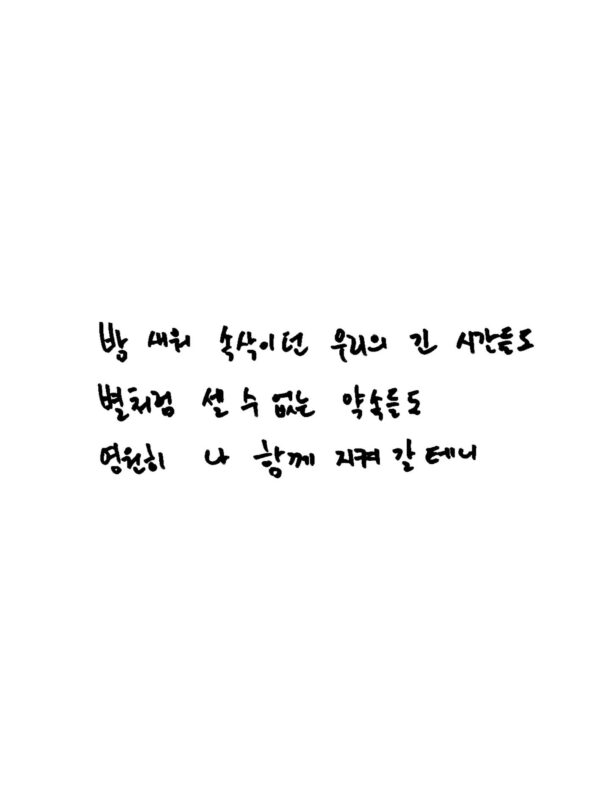 밤 새워 속삭이던 우리의 긴 시간들도
별처럼 셀 수 없는 약속들도
영원히 나 함께 지켜 갈 테니